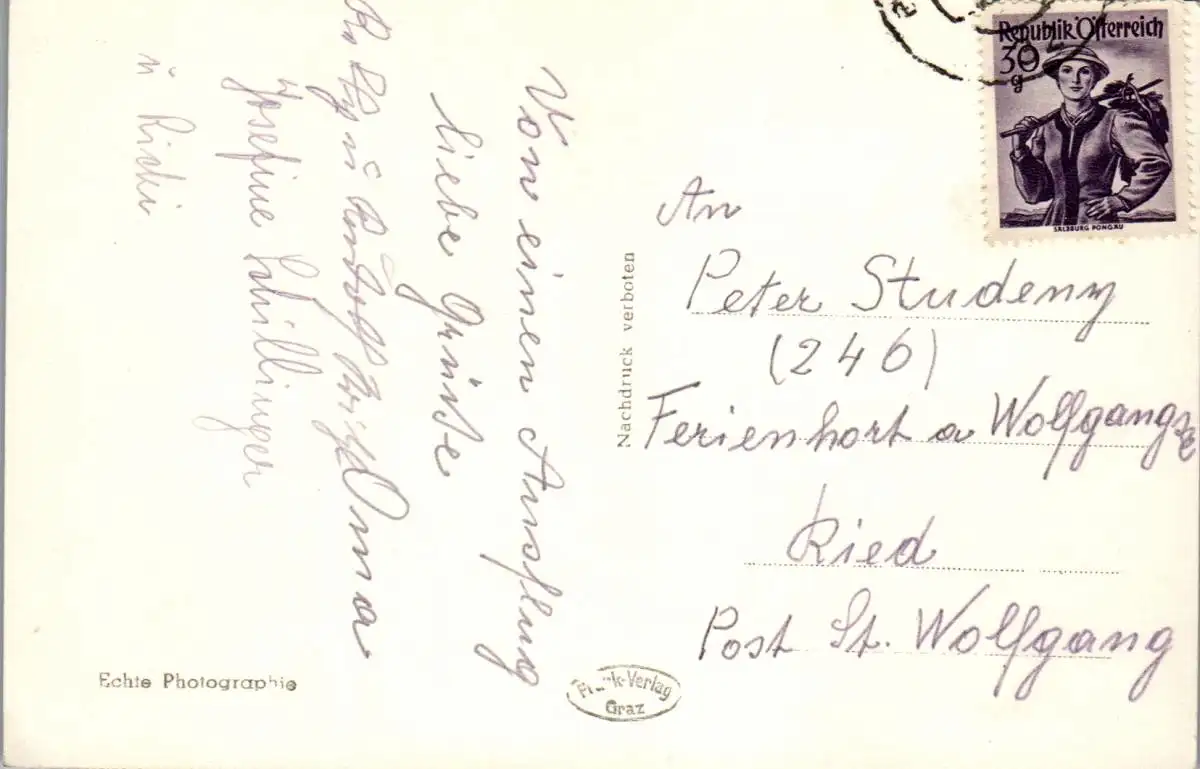 Von einen Ausflug
liebe Grüße
Oma
Josefine Schillinger
u Ricki
Echte Photographie
Nachdruck verboten
-Verlag
Graz
Republik Österreich
30
g
SALZBURG PONGAU
An
Peter Studeny
(246)
Ferienhort a Wolfgangse
Ried
Post St. Wolfgang